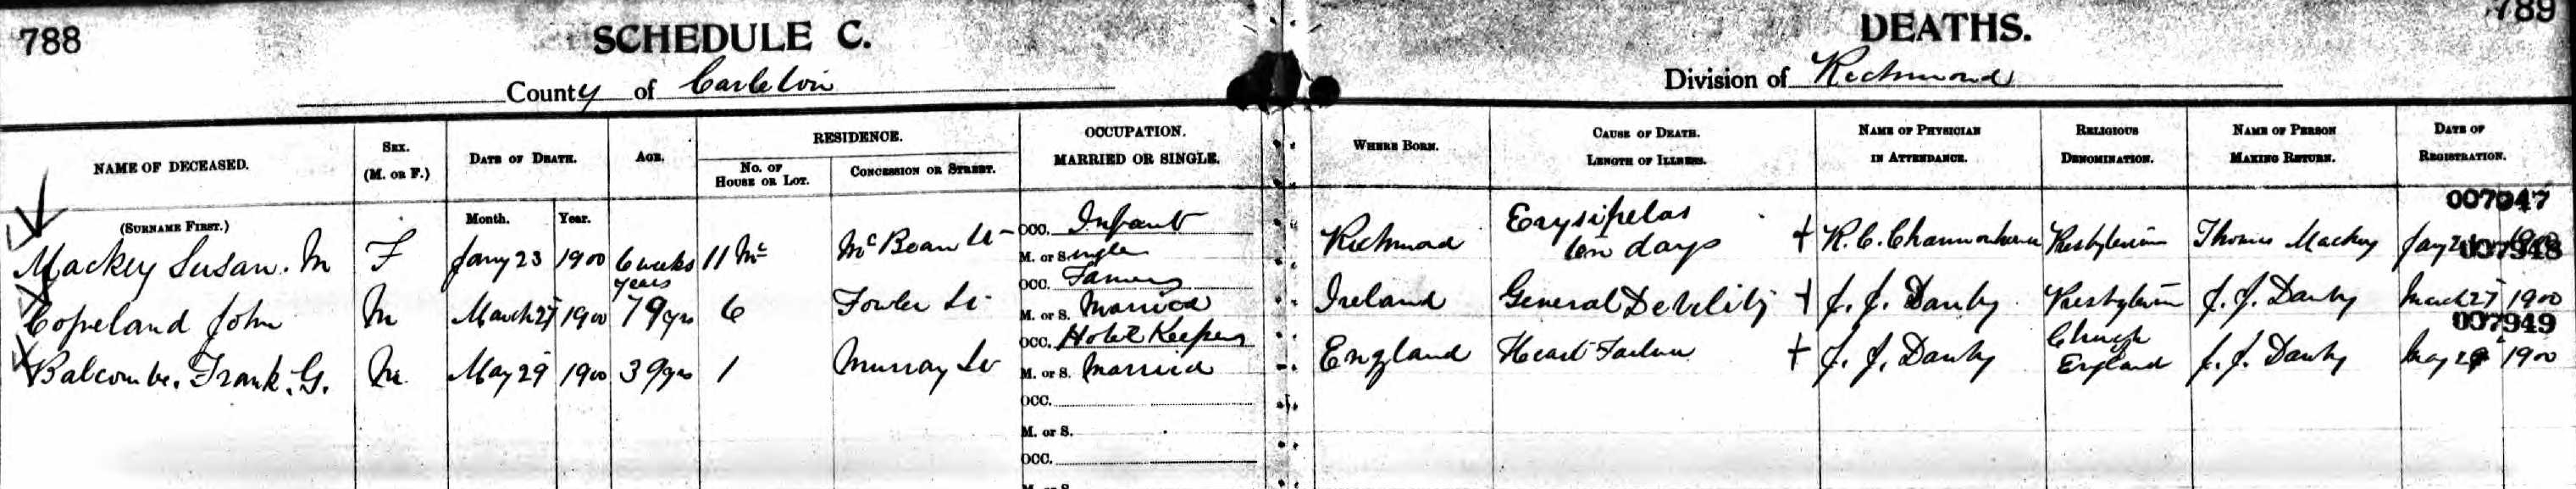 788
SCHEDULE C.
DEATHS.
789
County of Carleton
Division of Richmond
NAME OF DECEASED.
(SURNAME FIRST.)
SEX.
(M. OR F.)
DATE OF DEATH.
Month. Year.
AGE.
RESIDENCE.
NO. OF HOUSE OR LOT.
CONCESSION OR STREET.
OCCUPATION.
MARRIED OR SINGLE.
WHERE BORN.
CAUSE OF DEATH.
LENGTH OF ILLNESS.
NAME OF PHYSICIAN
IN ATTENDANCE.
RELIGIOUS
DENOMINATION.
NAME OF PERSON
MAKING RETURN.
DATE OF
REGISTRATION.
007947
OCC. Infant
Erysipelas
Mackey Susan. M F Jany 23 1900 6 weeks 11 Mc McBean St
M. or Single
Richmond ten days + R. C. Presbyterian Thomas Mackey Jany
007948
years
OCC. Farmer
Copeland John M March 27 1900 79 yrs 6 Fowler St
M. or S. Married
Ireland General Debility + J. J. Danby Presbyterian J. J. Danby March 27 1900
007949
OCC. Hotel Keeper
Balcombe. Frank. G. M. May 29 1900 39 yrs 1 Murray St
M. or S. Married
England Heart Failure + J. J. Danby Church England J. J. Danby May 29 1900
OCC.
M. or S.
OCC.
M. or S.